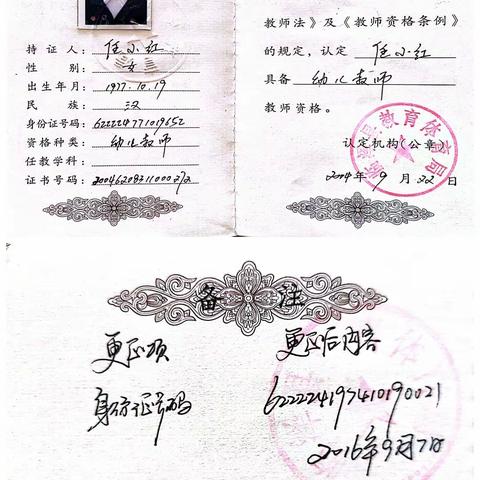 持证人：任小红
性别：女
出生年月：1977.10.19
民族：汉
身份证号码：622224771019652
资格种类：幼儿教师
任教学科：
证书号码：20046208311000272
教师法》及《教师资格条例》
的规定，认定 任小红
具备 幼儿教师
教师资格。
认定机构(公章)
2004年9月22日
县教育体育局
备注
更正项 更正后内容
身份证号码 622224197410190021
2016年9月7日